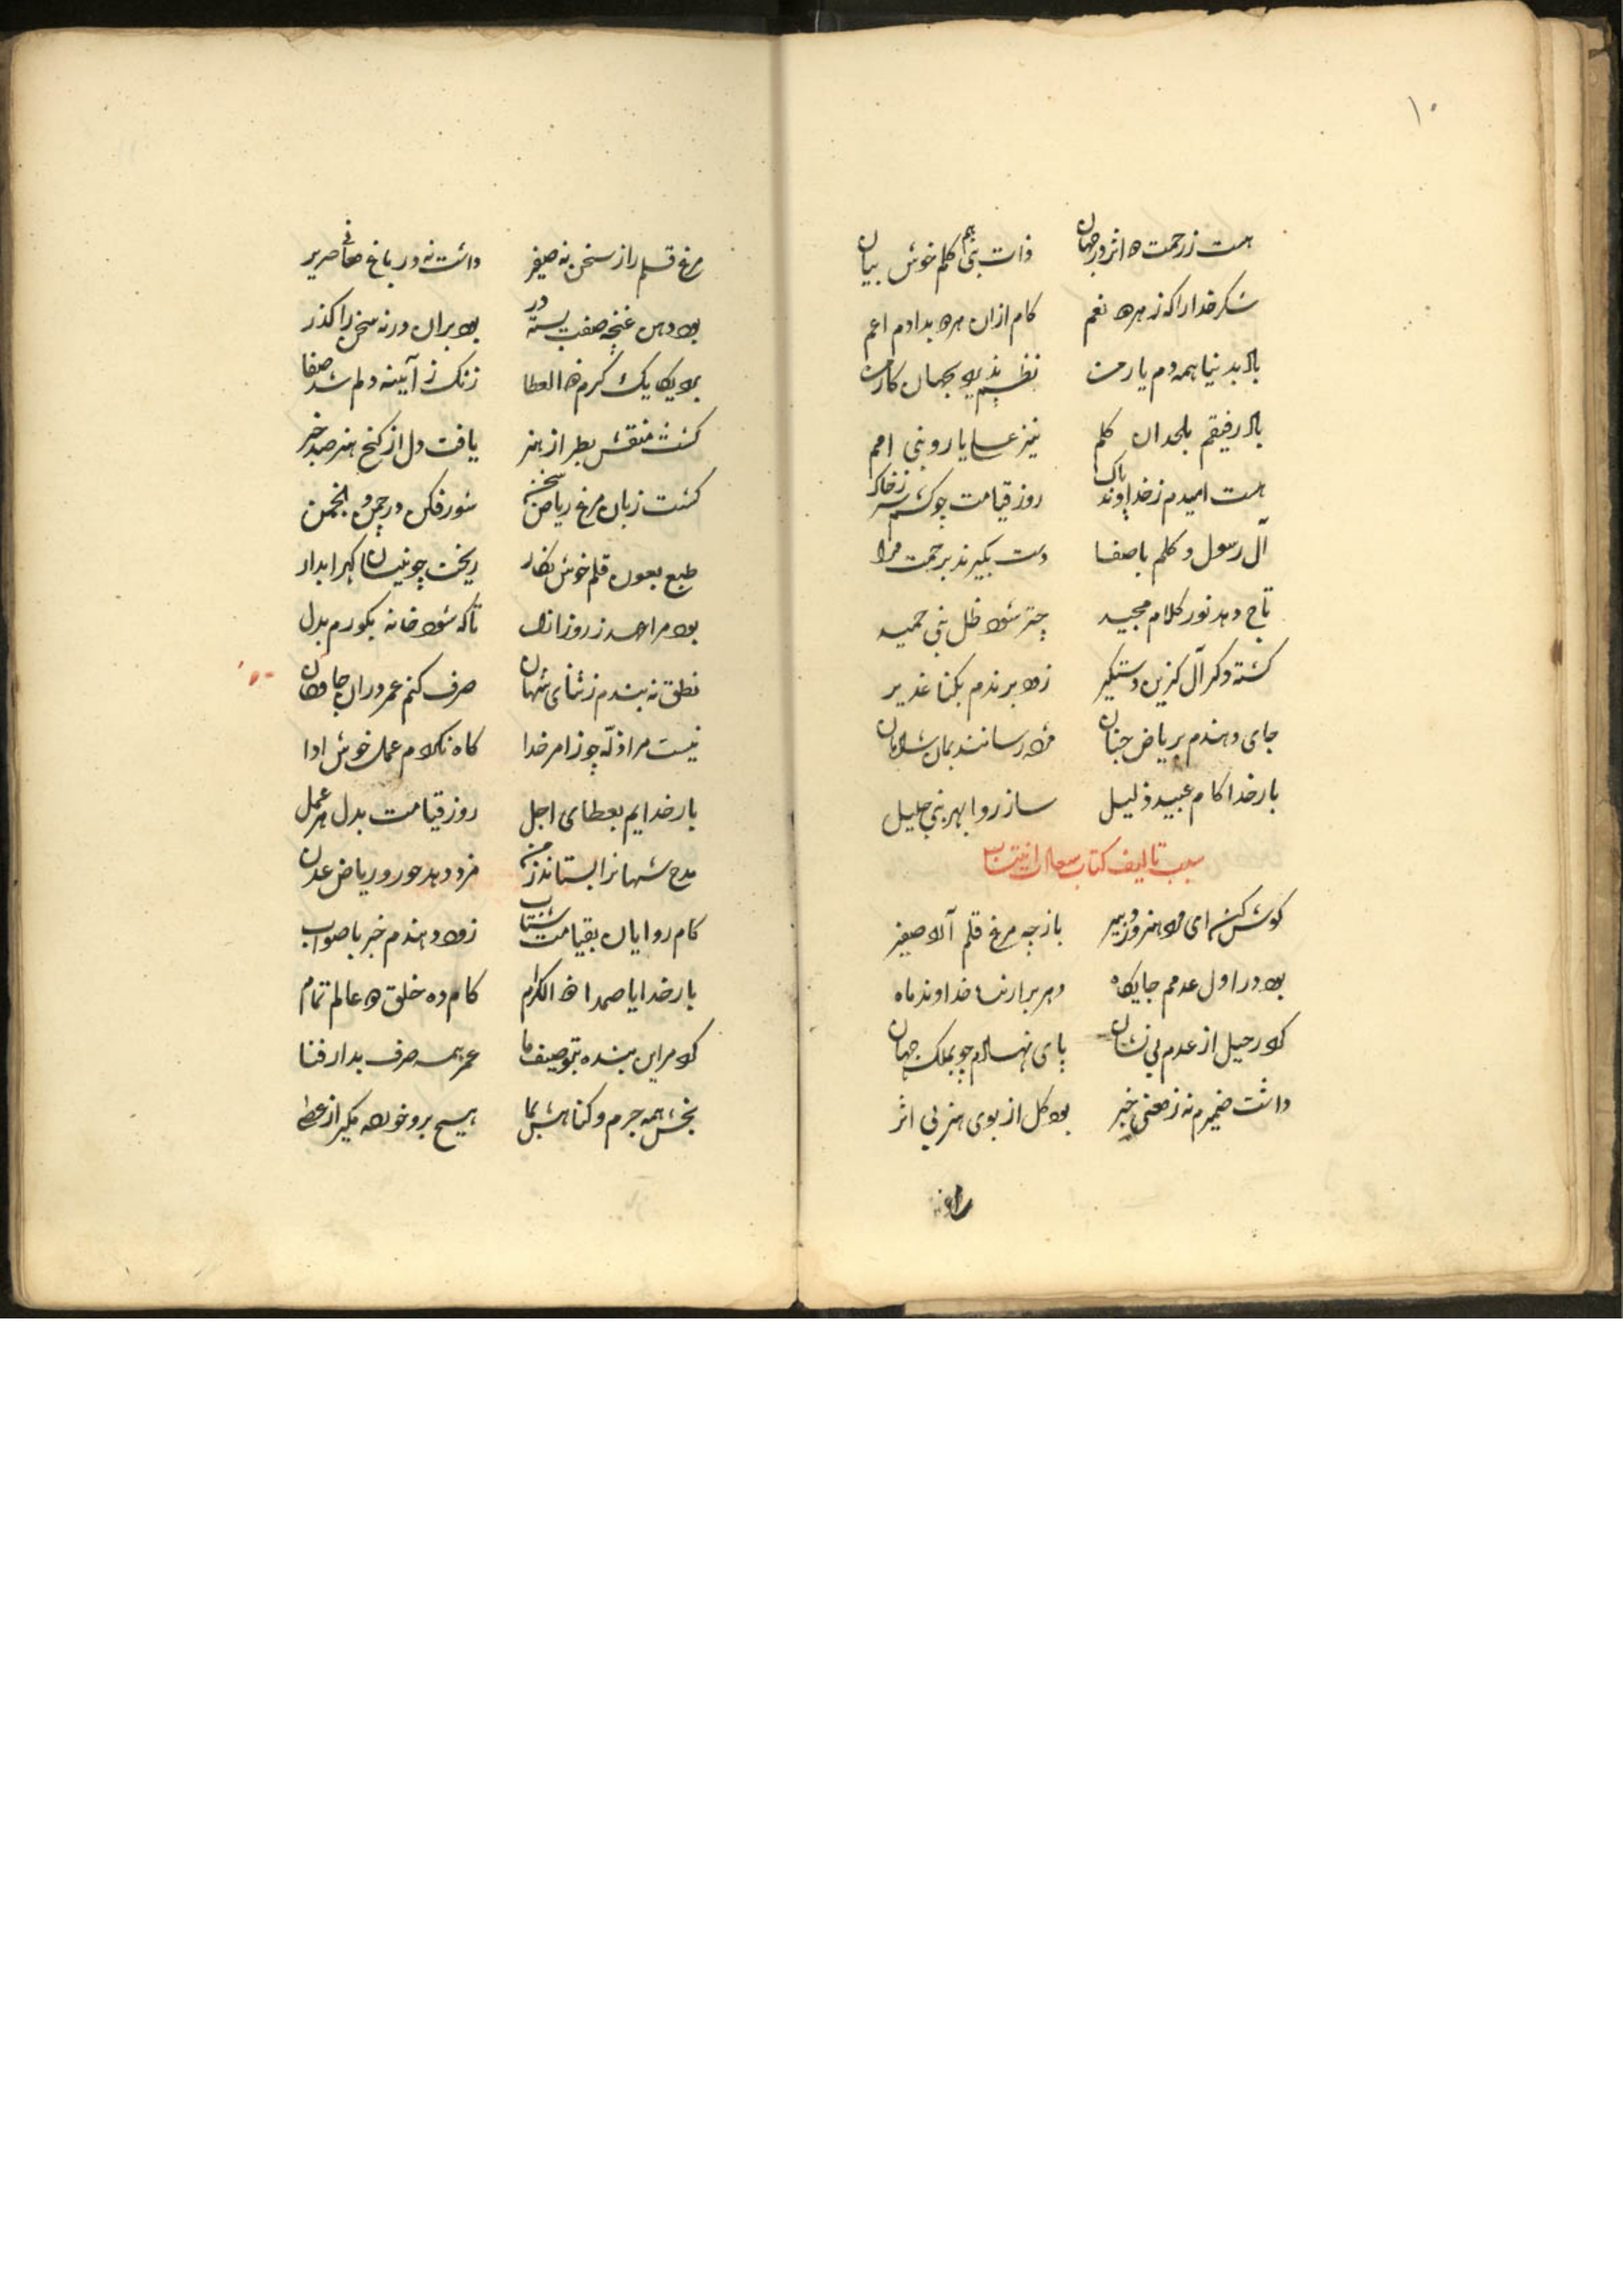 ۱۰
هست ز رحمت دو اثر در جهان ذات نبی هم کلم خوش بیان
شکر خدا را که ز هر دو نعم کام ازان هر دو بدادم اعم
باد بدنیا همه دم یار من نظم پذیرد بجهان کار من
باد رفیقم بلحد آن کلم نیز عسا یار و نبی امم
هست امیدم ز خداوند پاک روز قیامت چو کشم سر ز خاک
آل رسول و کلم باصفا دست بگیرند برحمت مرا
تاج دهد نور کلام مجید چتر شود ظل نبی حمید
کشته وکر آل کزین دستکیر زود برندم بکنا غدیر
جای دهندم بریاض جنان مژده رسانند بمان شادمان
بار خدا کام عبید ذلیل ساز روا بهر نبی جلیل
سبب تالیف کتاب سعادت انتساب
کوش کن ای مرد هنرور دبیر باز چه مرغ قلم آرد صفیر
بود در اول عدمم جایکاه
کرد رحیل از عدم بی نشان پای نهادم چو بملک جهان
داشت ضمیرم نه ز معنی خبر بود کل از بوی هنر بی اثر
مرغ قلم را ز سخن نه صفیر داشت نه در باغ معانی صریر
بود دهن غنچه صفت بسته در بود بران در نه سخن را کذر
کرد یکایک کرم ذو العطا زنک ز آیینه دلم شد صفا
کشت منقش بطراز هنر یافت دل از کنج هنر صد خبر
کشت زبان مرغ ریاض سخن شور فکن در چمن و انجمن
طبع بعون قلم خوش نکار ریخت چو نیسان کهر ابدار
بود مرا عهد ز روز ازل تا که شود خانه بکورم بدل
نطق نه بندم ز ثنای شهان صرف کنم عمر دران جاودان
نیست مرا زله چو ز امر خدا کاه نکردم عمل خوش ادا
بار خدایم بعطای اجل روز قیامت بدل هر عمل
مدح شهانرا بستاند ز من مزد دهد حور و ریاض عدن
کام روایان بقیامت شتاب زود دهندم خبر باصواب
بار خدایا صمدا ذو الکرم کام ده خلق دو عالم تمام
کرد مر این بنده بتوصیف ما عمر همه صرف بدار فنا
بخش همه جرم و کناهش بما هیچ برو خورده مکیر از عطا